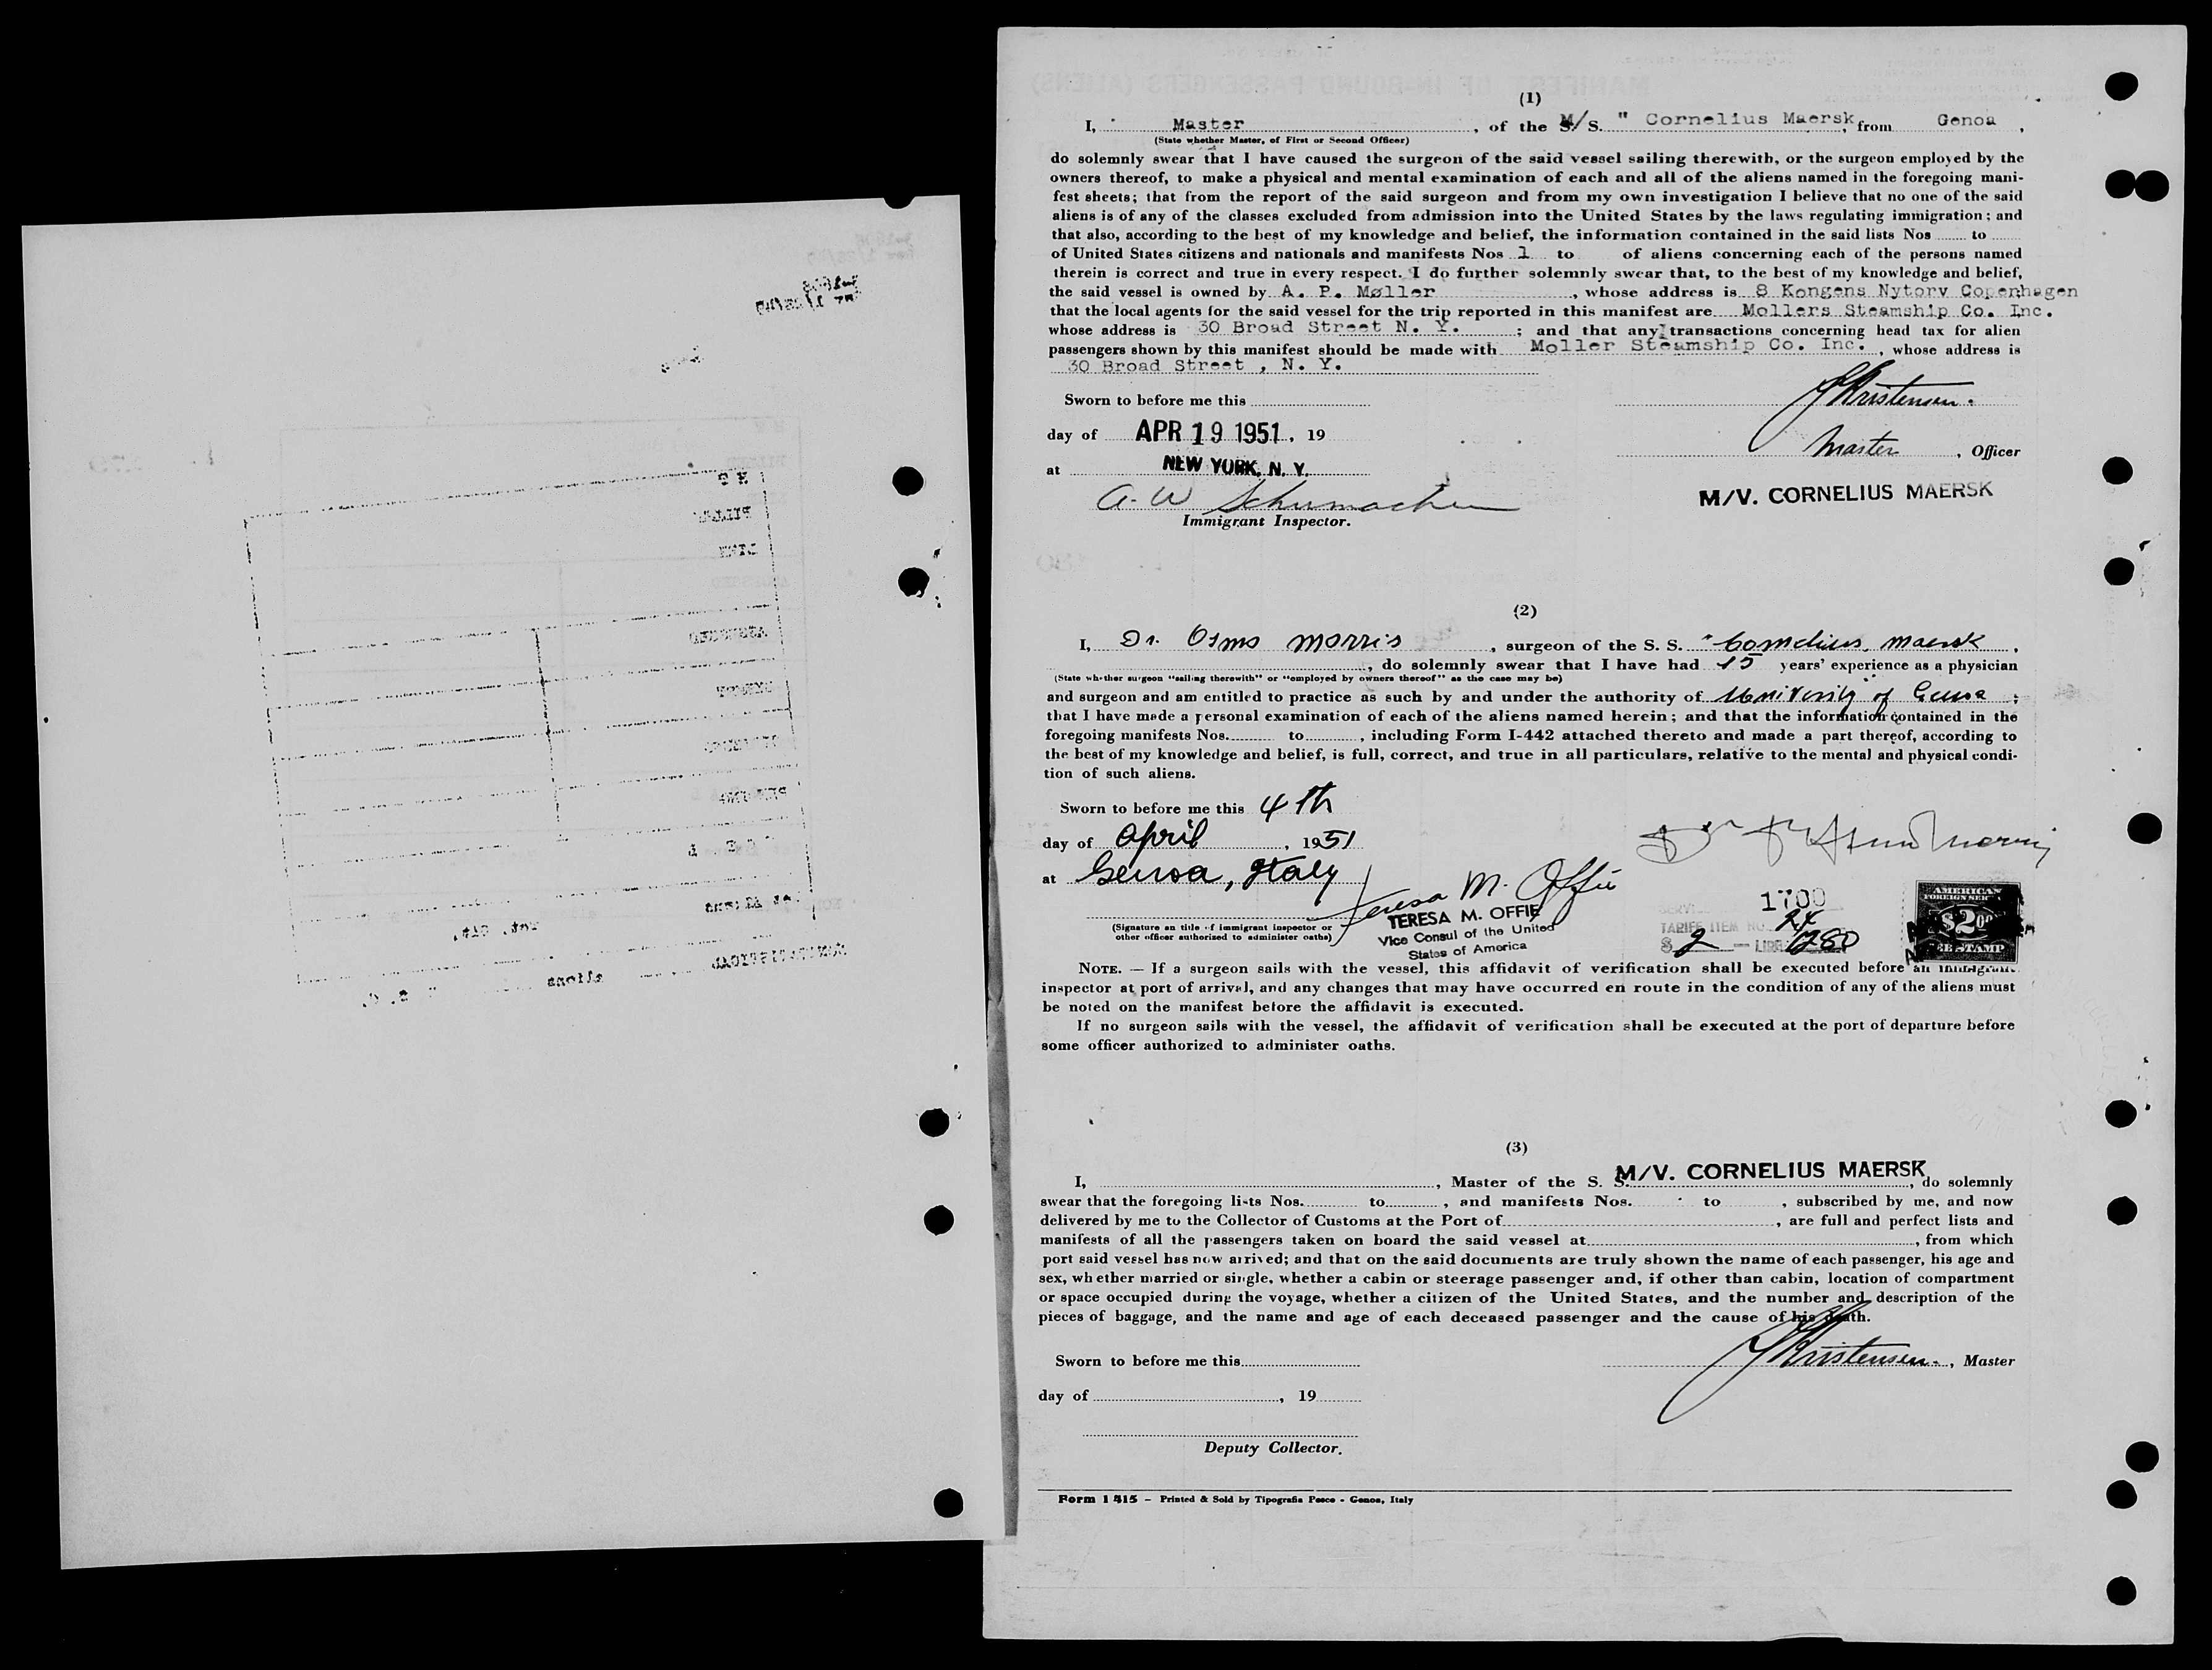 (1)
I, Master, of the M/S. " Cornelius Maersk, from Genoa,
(State whether Master, of First or Second Officer)
do solemnly swear that I have caused the surgeon of the said vessel sailing therewith, or the surgeon employed by the
owners thereof, to make a physical and mental examination of each and all of the aliens named in the foregoing mani-
fest sheets; that from the report of the said surgeon and from my own investigation I believe that no one of the said
aliens is of any of the classes excluded from admission into the United States by the laws regulating immigration; and
that also, according to the best of my knowledge and belief, the information contained in the said lists Nos ...... to ......
of United States citizens and nationals and manifests Nos 1 to of aliens concerning each of the persons named
therein is correct and true in every respect. I do further solemnly swear that, to the best of my knowledge and belief,
the said vessel is owned by A. P. Møller, whose address is 8 Kongens Nytorv Copenhagen
that the local agents for the said vessel for the trip reported in this manifest are Mollers Steamship Co. Inc.
whose address is 30 Broad Street N. Y. ; and that any transactions concerning head tax for alien
passengers shown by this manifest should be made with Moller Steamship Co. Inc., whose address is
30 Broad Street , N. Y.
Sworn to before me this
Kristensen.
day of APR 19 1951, 19
Master, Officer
at NEW YORK, N. Y.
M/V. CORNELIUS MAERSK
A. W Schumacher
Immigrant Inspector.
(2)
I, Dr. Osmo Morris, surgeon of the S. S. "Cornelius Maersk,
, do solemnly swear that I have had 15 years' experience as a physician
(State whether surgeon "sailing therewith" or "employed by owners thereof" as the case may be)
and surgeon and am entitled to practice as such by and under the authority of University of Genoa ;
that I have made a personal examination of each of the aliens named herein; and that the information contained in the
foregoing manifests Nos. to , including Form I-442 attached thereto and made a part thereof, according to
the best of my knowledge and belief, is full, correct, and true in all particulars, relative to the mental and physical condi-
tion of such aliens.
Sworn to before me this 4th
day of April, 1951
at Genoa, Italy
Teresa M. Offie
TERESA M. OFFIE
Vice Consul of the United
States of America
(Signature an title of immigrant inspector or
other officer authorized to administer oaths)
1700
TARIFF ITEM NO. 24
$ 2 — LIRE 1280
AMERICAN
FOREIGN SERVICE
$2.00
FEE STAMP
NOTE. — If a surgeon sails with the vessel, this affidavit of verification shall be executed before an immigrant
inspector at port of arrival, and any changes that may have occurred en route in the condition of any of the aliens must
be noted on the manifest before the affidavit is executed.
If no surgeon sails with the vessel, the affidavit of verification shall be executed at the port of departure before
some officer authorized to administer oaths.
(3)
I, , Master of the S. S. M/V. CORNELIUS MAERSK, do solemnly
swear that the foregoing lists Nos. to , and manifests Nos. to , subscribed by me, and now
delivered by me to the Collector of Customs at the Port of , are full and perfect lists and
manifests of all the passengers taken on board the said vessel at , from which
port said vessel has now arrived; and that on the said documents are truly shown the name of each passenger, his age and
sex, whether married or single, whether a cabin or steerage passenger and, if other than cabin, location of compartment
or space occupied during the voyage, whether a citizen of the United States, and the number and description of the
pieces of baggage, and the name and age of each deceased passenger and the cause of his death.
Sworn to before me this
Kristensen., Master
day of , 19
Deputy Collector.
Form I 415 – Printed & Sold by Tipografia Pesce - Genoa, Italy